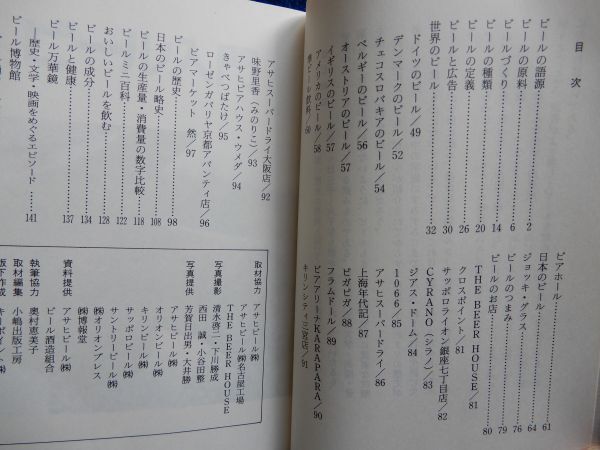 目次
ビールの語源……2
ビールの原料……6
ビールづくり……14
ビールの種類……20
ビールの定義……26
ビールと広告……30
世界のビール……32
ドイツのビール／49
デンマークのビール／52
チェコスロバキアのビール／54
ベルギーのビール／56
オーストリアのビール／57
イギリスのビール／57
アメリカのビール／58
ビアホール……61
日本のビール……64
ジョッキ・グラス……76
ビールのつまみ……79
ビールのお店……80
THE BEER HOUSE／81
クロスポイント／81
サッポロライオン銀座七丁目店／82
CYRANO（シラノ）／83
ジアス・ドーム／84
1066／85
アサヒスーパードライ／86
上海年代記／87
ビガビガ／88
フラムドール／89
ビアアリーナKARAPARA／90
キリンシティ三宮店／91
アサヒスーパードライ大阪店／92
味野里香（みのりこ）／93
アサヒビアハウス・ウメダ／94
きゃべつばたけ／95
ローゼンガバリヤ京都アバンティ店／96
ビアマーケット 然／97
ビールの歴史……98
日本のビール略史……108
ビールの生産量・消費量の数字比較……118
ビールミニ百科……122
おいしいビールを飲む……128
ビールの成分……134
ビールと健康……137
ビール万華鏡
―歴史・文学・映画をめぐるエピソード……141
ビール博物館
取材協力
アサヒビール㈱
アサヒビール㈱名古屋工場
THE BEER HOUSE
写真撮影
清水啓二・下川勝成
西田 誠・小谷田整
写真提供
芳賀日出男・大井勝
アサヒビール㈱
オリオンビール㈱
キリンビール㈱
サッポロビール㈱
サントリービール㈱
㈱オリオンプレス
㈱博報堂
資料提供
アサヒビール㈱
ビール酒造組合
執筆協力
奥村恵美子
取材編集
小嶋出版工房